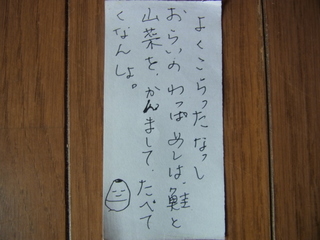 よくこらったなっし
おらいのわっぱめしは、鮭と
山菜を、かんまして、たべて
くなんしょ。